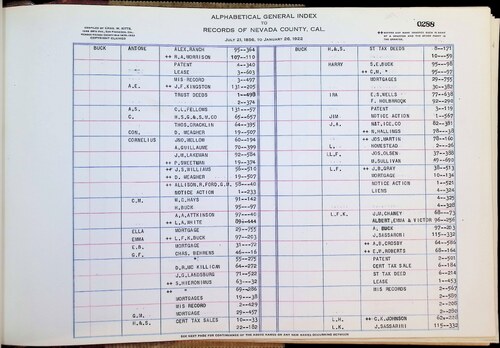 ALPHABETICAL GENERAL INDEX
TO
RECORDS OF NEVADA COUNTY, CAL.
0288
BUCK ANTONE ALEX.RANCH 95--364
++ H.A.MORRISON 107--110
PATENT 4--340
LEASE 3--603
MIS RECORD 3--497
A.E. ++ J.F.KINGSTON 131--205
TRUST DEEDS 1--499
2--374
A.S. E.L.FELLOWS 131--57
C. N.S.G.& S.M.CO 65--657
THOS.CRACKLIN 64--355
CON. D. MEAGHER 19--507
CORNELIUS JNO.MELLOW 60--194
A.GUILLAUME 70--399
J.M.LAKEMAN 92--584
++ P.SWEETMAN 19--374
++ J.S.WILLIAMS 56--510
++ D. MEAGHER 19--507
++ ALLISON,R.FORD,G.M. 58--40
NOTICE ACTION 1--233
C.H. W.G.HAYS 91--142
H.BUCK 95--97
A.A.ATTKINSON 97--40
++ L.A.WHITE 89--444
ELLA MORTGAGE 29--755
EMMA ++ L.F.K.BUCK 97--203
E.R. MORTGAGE 31--72
G.F. CHAS. BEHRENS 46--16
" 55--275
D.R.MC KILLIGAN 64--272
J.G.LANGSBURG 71--522
++ S.HIERONIMUS 63--32
++ " 69--286
MORTGAGES 19--38
MIS RECORD 2--429
G.H. MORTGAGE 29--457
H.&S. CERT TAX SALES 10--33
22--182
BUCK H.&S. ST TAX DEEDS 8--171
HARRY S.E.BUCK 95--98
++ C.H. " 95--97
MORTGAGES 29--755
30--382
IRA E.S.WELLS 77--638
F. HOLBROOK 92--296
PATENT 3--119
JIM NOTICE ACTION 1--567
J.A. NAT,ICE,CO 82--381
++ R.HALLINGS 78--38
++ JOS.MARTIN 78--160
L. HOMESTEAD 2--26
L.F. JOS.OLSEN 37--388
M.SULLIVAN
L.F. ++ J.B.GRAY 38--513
MORTGAGE 10--134
NOTICE ACTION 1--521
LIENS 4--324
4--325
4--328
L.F.K. J.M.CHANEY 68--73
ALBERT,EMMA & VICTOR 96--256
A. BUCK 97--203
J.SASSARONI 115--332
++ A.B.CROSBY 64--586
++ E.M.ROBERTS 68--164
PATENT 2--501
CERT TAX SALE 6--184
ST TAX DEED 6--214
LEASE 1--453
MIS RECORDS 2--562
L.H. ++ G.K.JOHNSON 60--222
L.K. J.SASSARINI 115--332